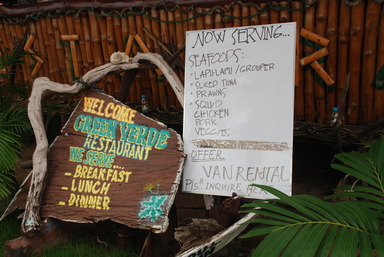 WELCOME
GREEN VERDE
RESTAURANT
WE SERVE...
- BREAKFAST
- LUNCH
- DINNER
NOW SERVING...
SEAFOODS:
• LAPU-LAPU/GROUPER
• SLICED TUNA
• PRAWNS
• SQUID
CHICKEN
PORK
VEGGIES
OFFER:
VAN RENTAL
Pls. INQUIRE HERE